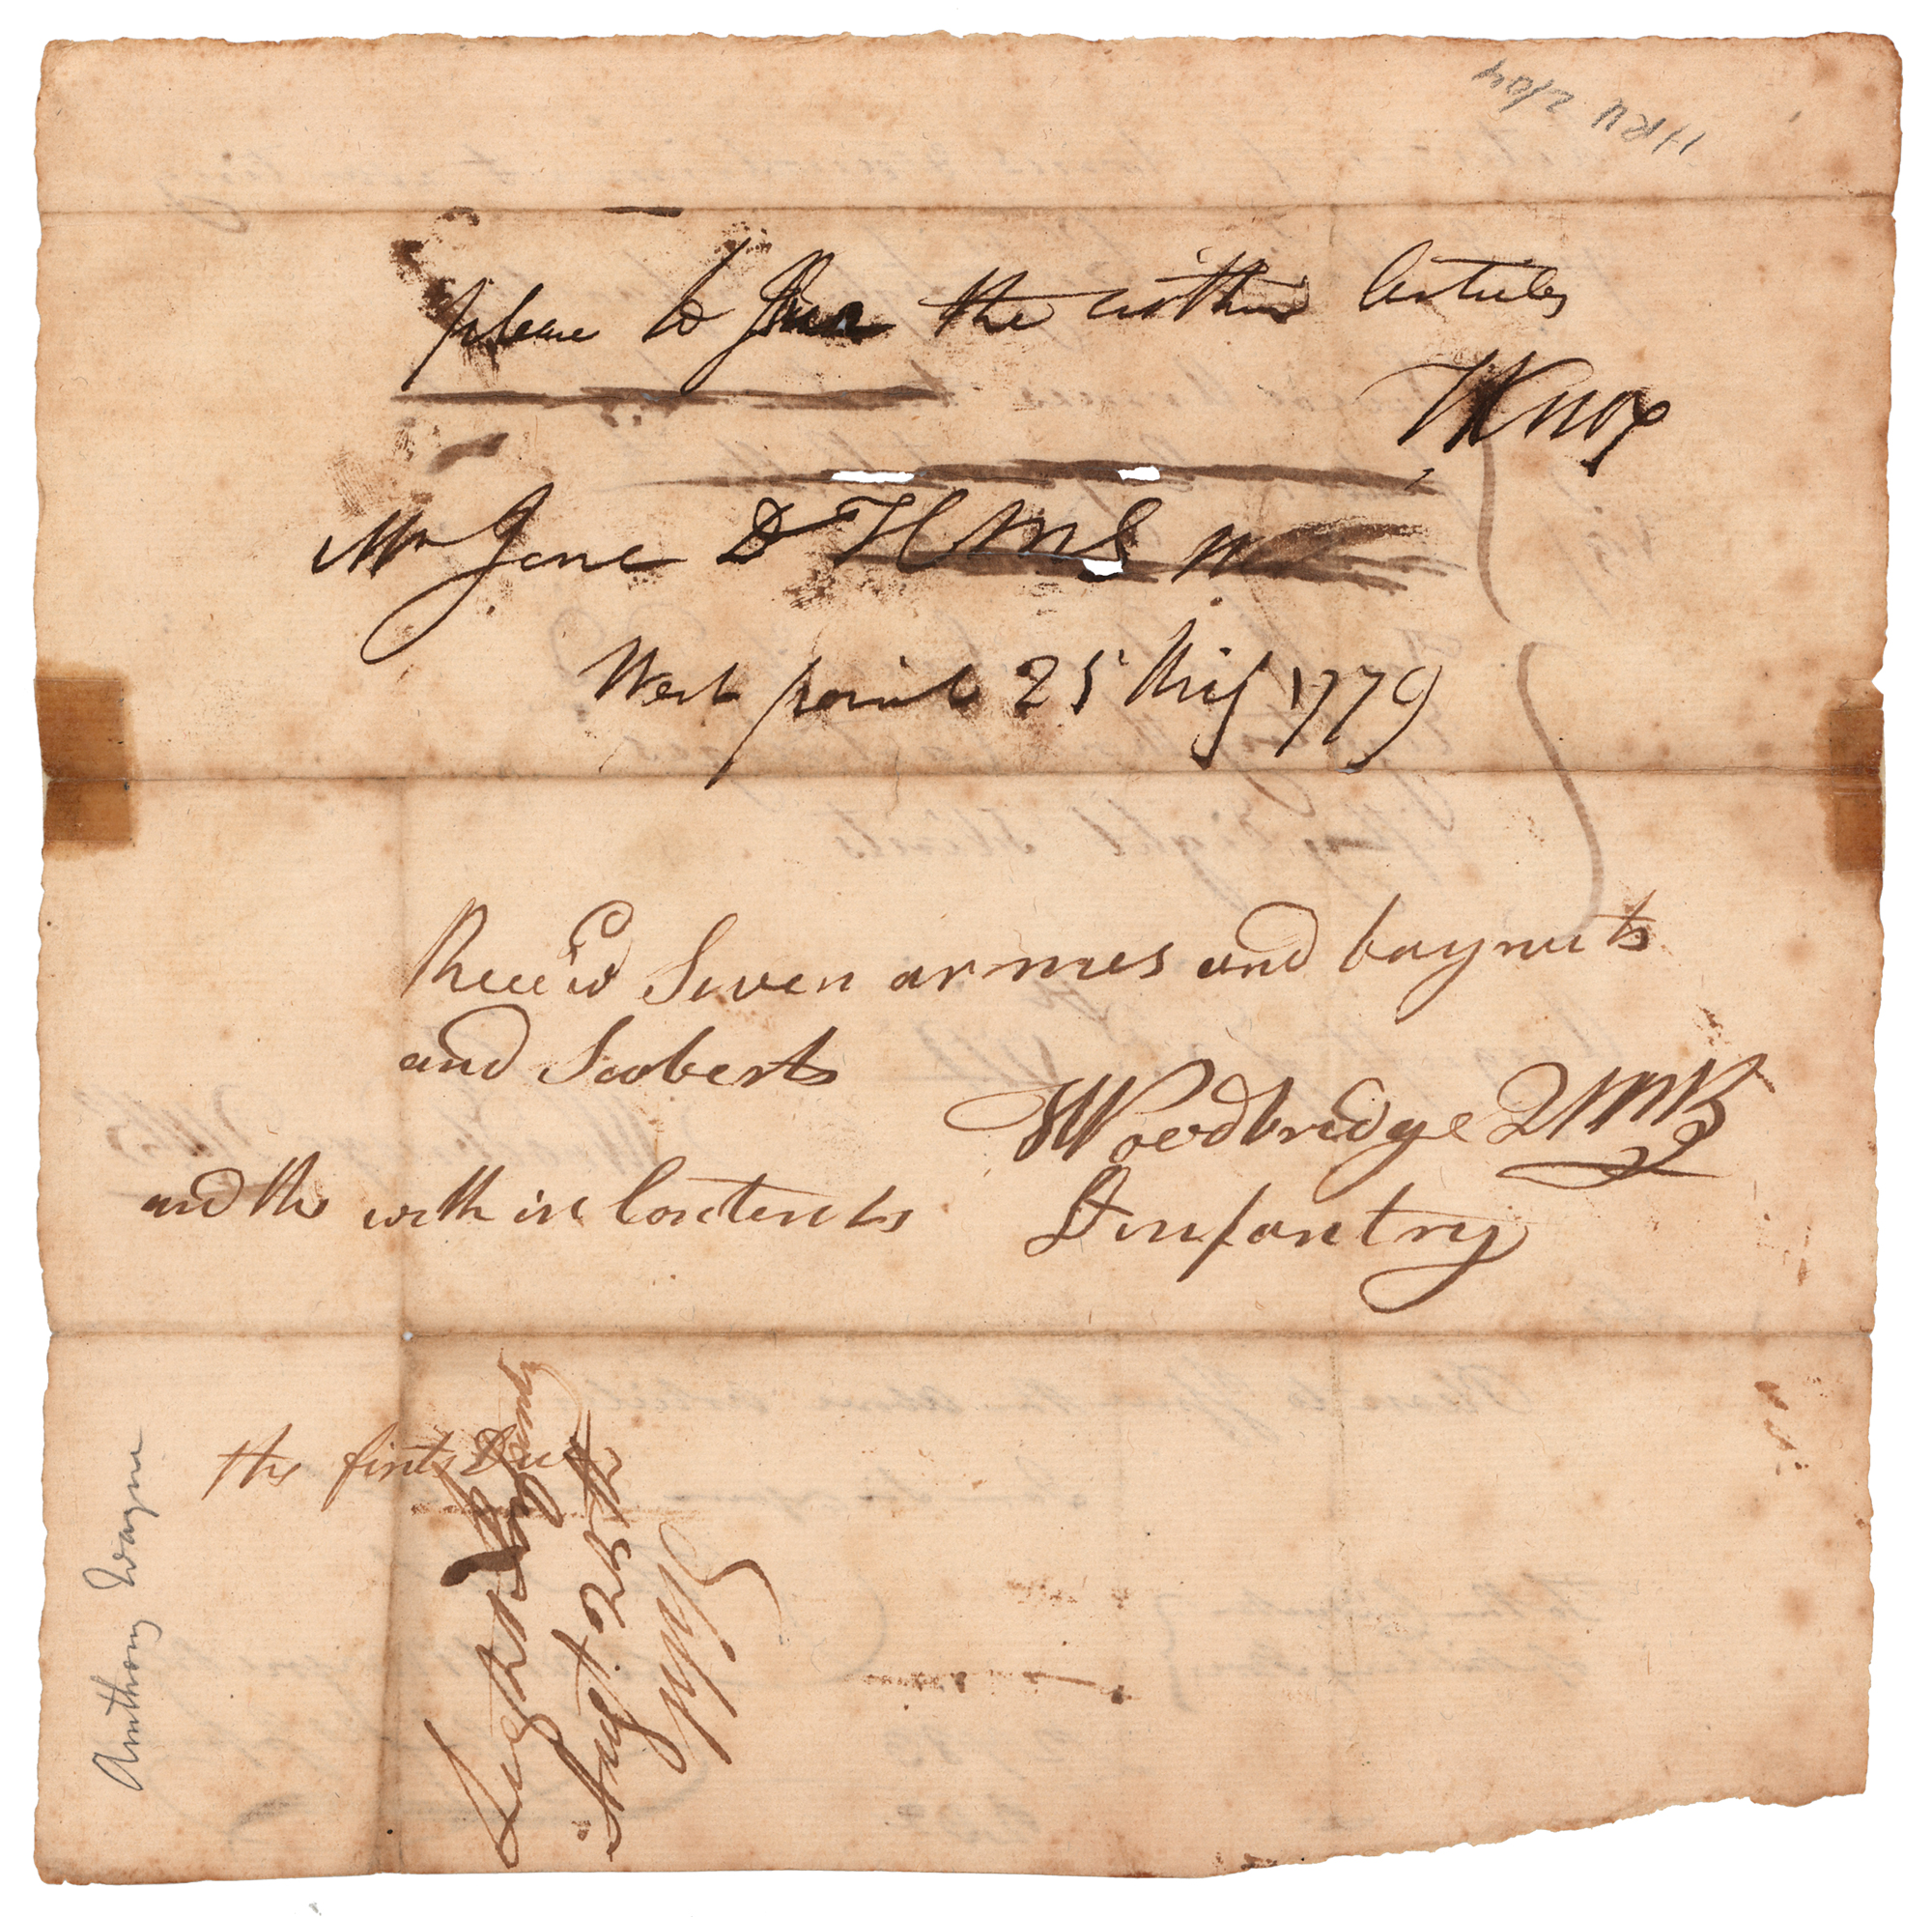 please to Issue the within Articles
HKnox
Mr Jone D H M S
West point 25 Aug 1779
Receed Seven armes and baynuts
and Scoberts
Woodbridge QMB
and the with in Contents
Infantry
the firts
Light Infantry
Augt. 25th
Anthony Wayne